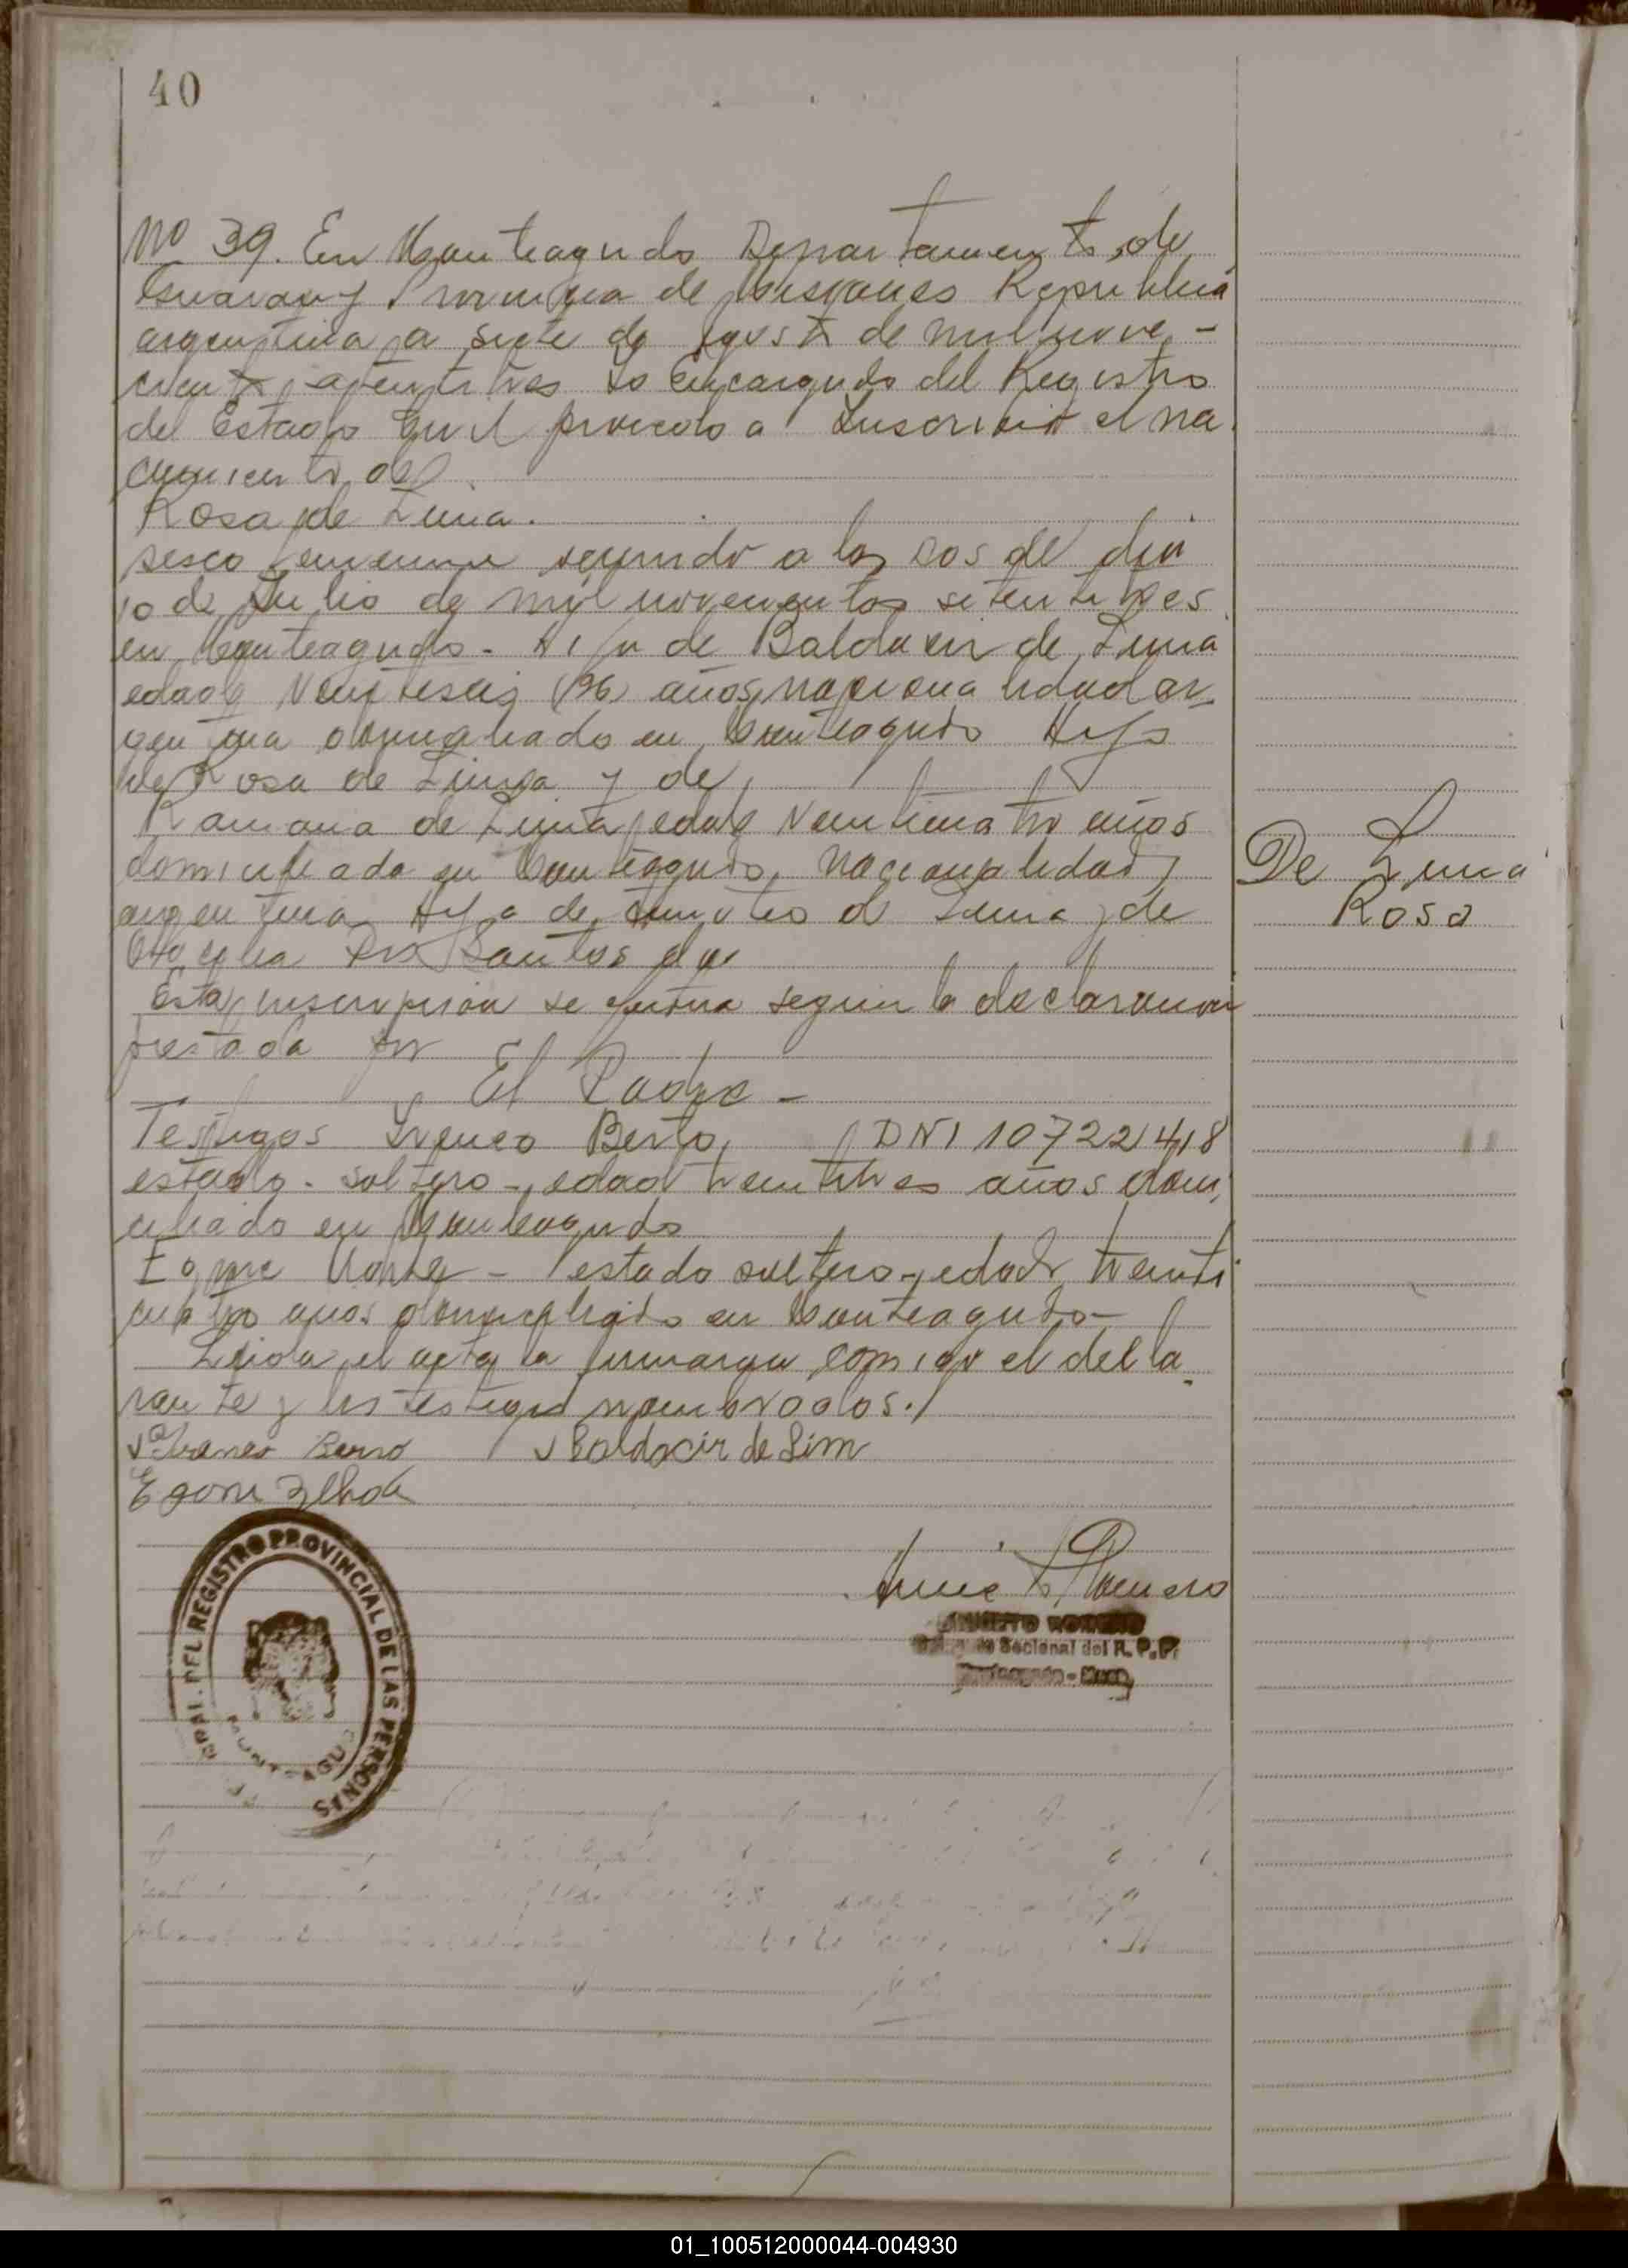 40
Nº 39. En Monteagudo Departamento de
Guarany Provincia de Misiones Republica
argentina a siete de agosto de mil nove-
cientos setentitres Yo Encargado del Registro
del Estado Civil procedo a Inscribir el na
cimiento de
Rosa de Lima.
sexo femenino ocurrido a las dos del dia
10 de Julio de mil novecientos setentitres
en Monteagudo - Hija de Baldacir de Lima
edad Veintiseis (26) años, nacionalidad ar
gentina domiciliado en Monteagudo Hijo
de Rosa de Lima y de
Ramona de Lima edad Veinticuatro años
domiciliada en Monteagudo, nacionalidad
argentina Hija de de Lima y de
Dos Santos
Esta inscripcion se efectua segun la declaracion
prestada por
El Padre -
Testigos Ireneo Berro, DNI 10722418
estado - soltero - edad treintitres años domi
ciliado en Monteagudo
estado soltero - edad treinti
cuatro años domiciliado en Monteagudo -
Leida el acta la firmaron conmigo el decla
rante y los testigos nombrados.
Ireneo Berro Baldacir de Lim
Egon
De Lima
Rosa
DEL REGISTRO PROVINCIAL DE LAS PERSONAS
ROMERO
Seccional del R. P. P.
01_100512000044-004930